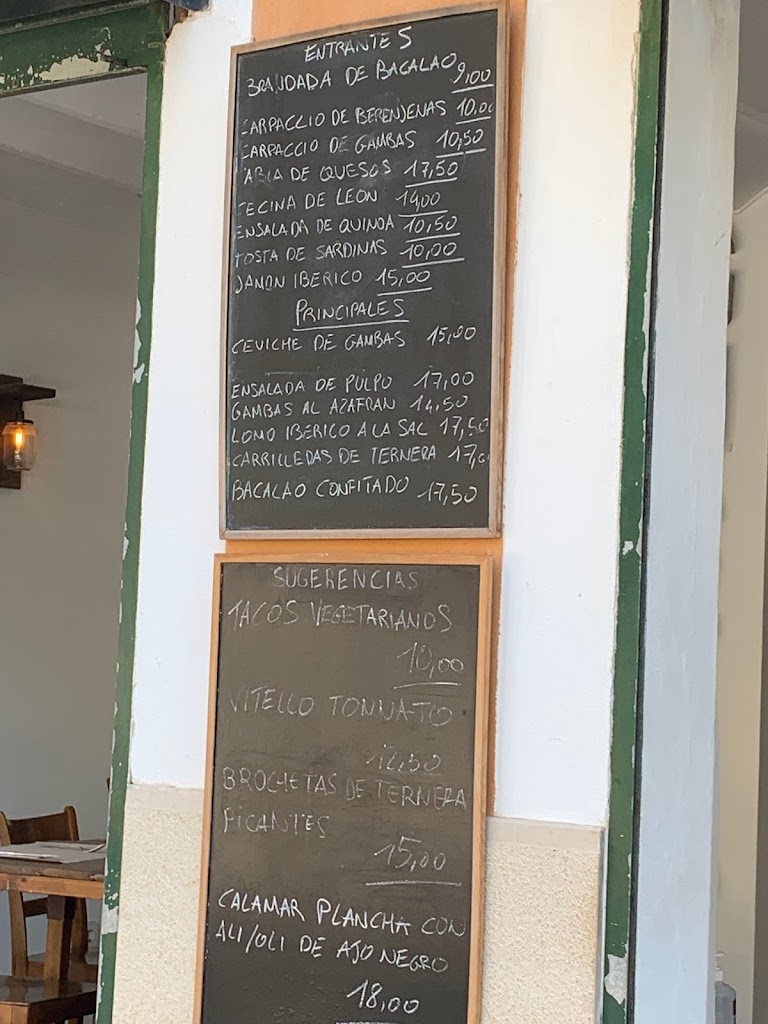 ENTRANTES
BRANDADA DE BACALAO 9,00
CARPACCIO DE BERENJENAS 10,00
CARPACCIO DE GAMBAS 10,50
TABLA DE QUESOS 17,50
CECINA DE LEON 14,00
ENSALADA DE QUINOA 10,50
TOSTA DE SARDINAS 10,00
JAMON IBERICO 15,00
PRINCIPALES
CEVICHE DE GAMBAS 15,00
ENSALADA DE PULPO 17,00
GAMBAS AL AZAFRAN 14,50
LOMO IBERICO A LA SAL 17,50
CARRILLEDAS DE TERNERA 17,0
BACALAO CONFITADO 17,50
SUGERENCIAS
TACOS VEGETARIANOS
10,00
VITELLO TONNATO
12,50
BROCHETAS DE TERNERA
PICANTES
15,00
CALAMAR PLANCHA CON
ALI/OLI DE AJO NEGRO
18,00